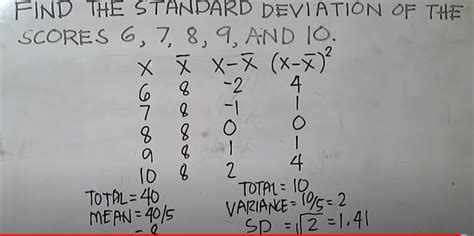 FIND THE STANDARD DEVIATION OF THE
SCORES 6, 7, 8, 9, AND 10.
X X̄ X-X̄ (X-X̄)²
6 8 -2 4
7 8 -1 1
8 8 0 0
9 8 1 1
10 8 2 4
TOTAL = 40 TOTAL = 10
MEAN = 40/5 VARIANCE = 10/5 = 2
= 8 SD = √2 = 1.41